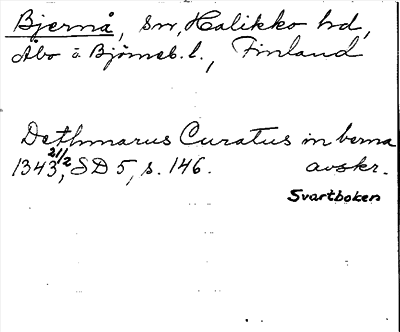 Bjernå, sn, Halikko hd,
Åbo ä Björneb. l., Finland
Dethmarus Curatus in berna
1343 21/2, SD 5, s. 146. avskr.
Svartboken